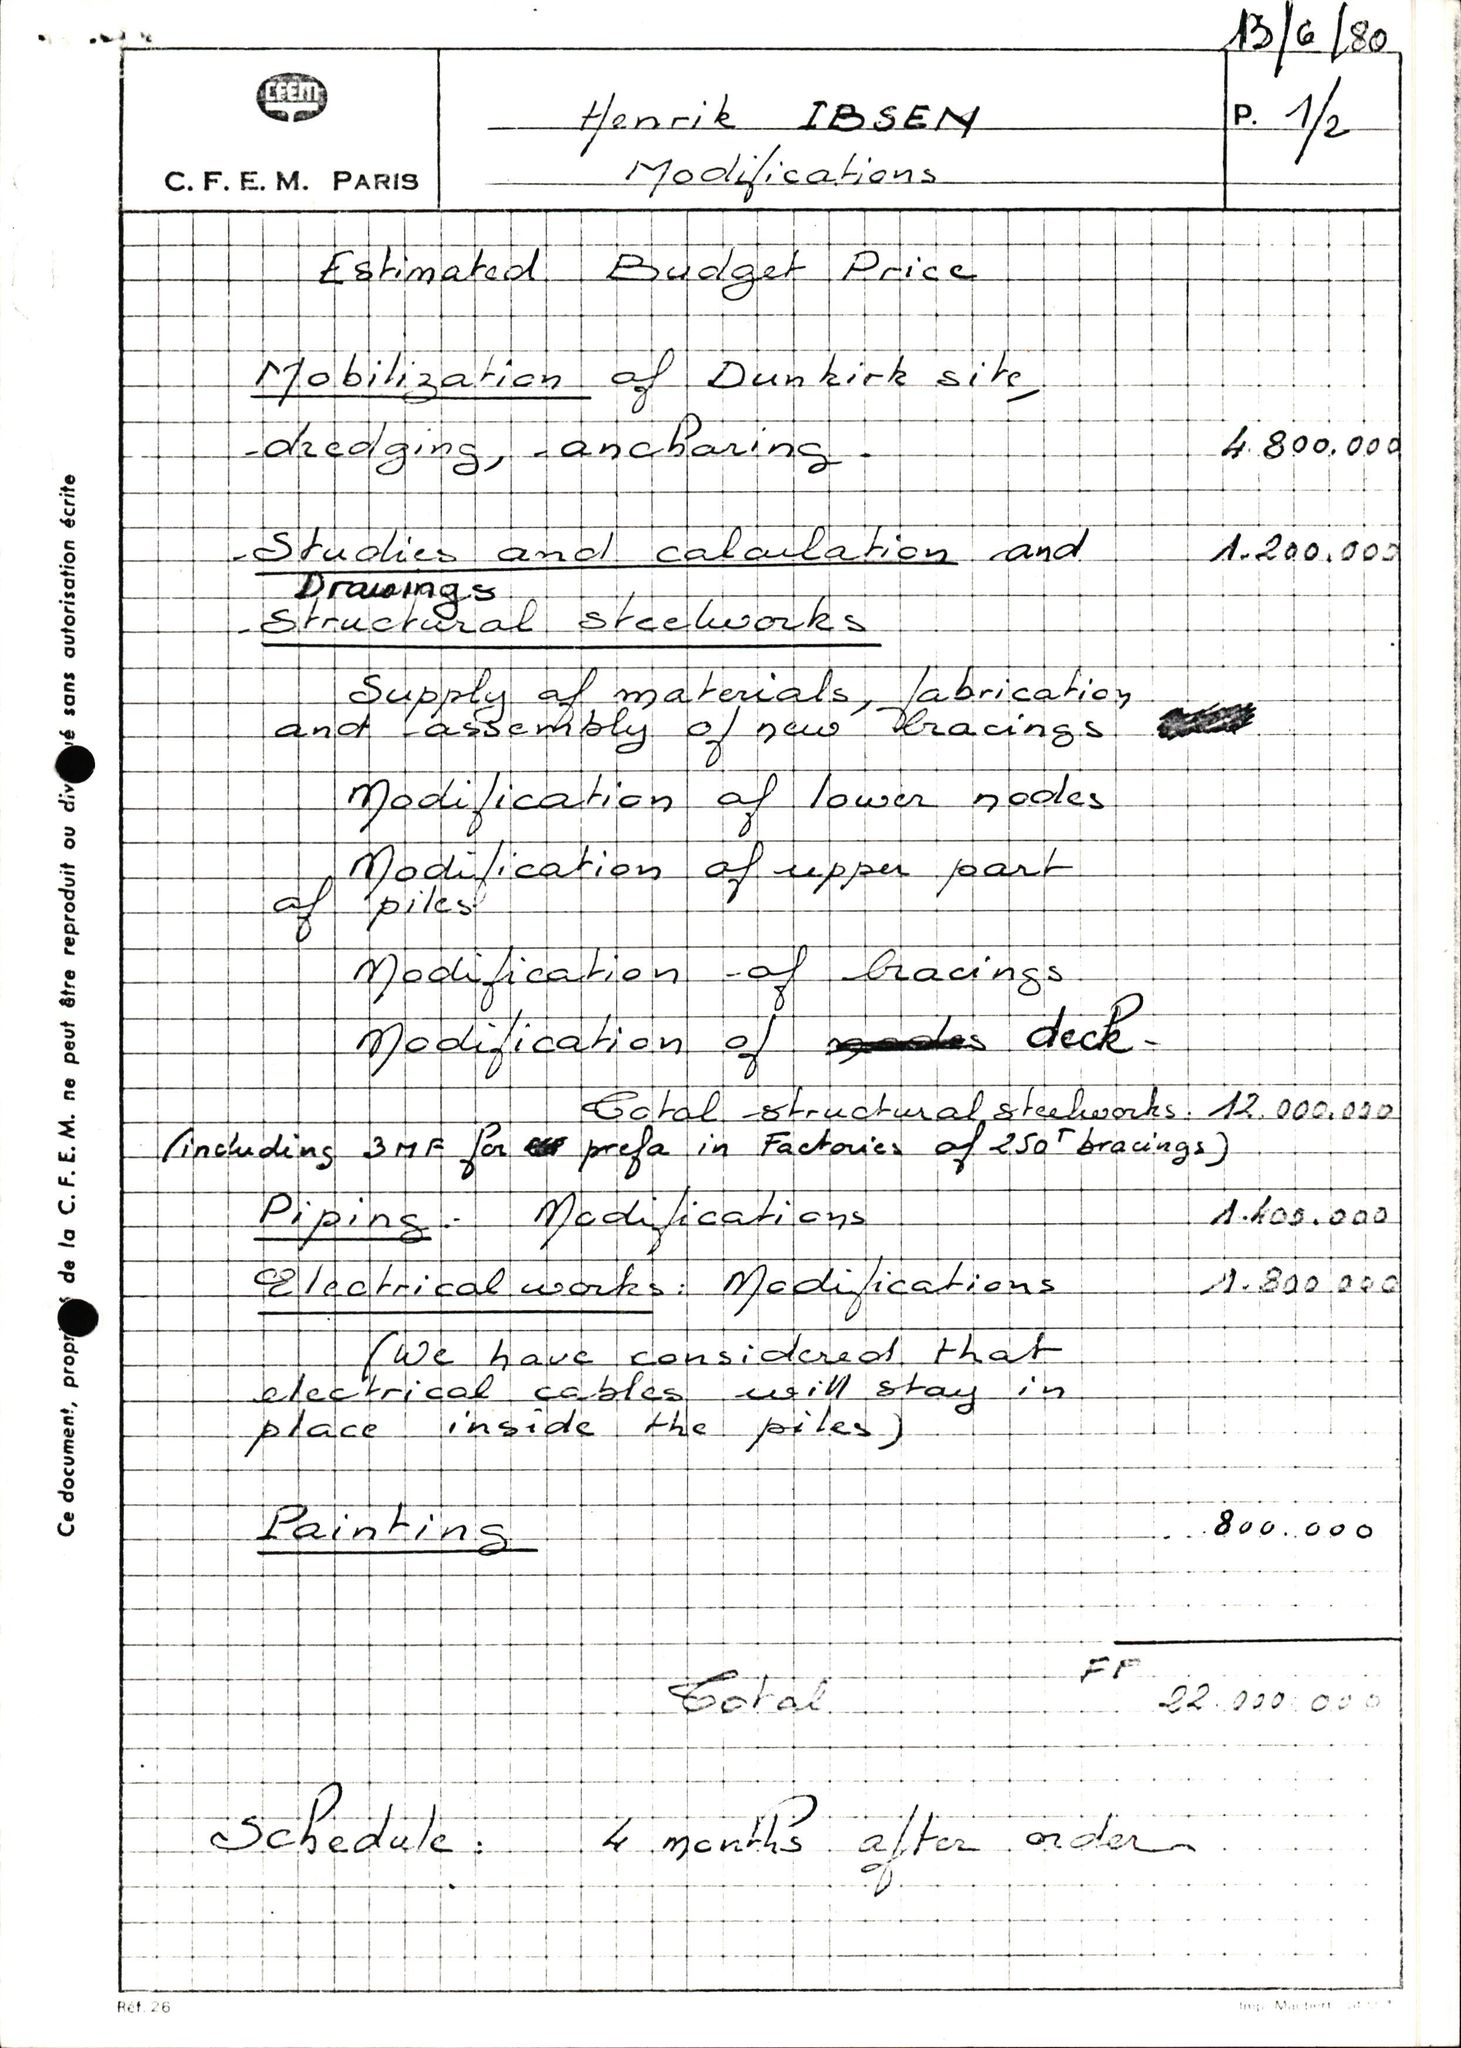 13/6/80
CFEM
C. F. E. M. PARIS
Henrik IBSEN
Modifications
P. 1/2
Estimated Budget Price
Mobilization of Dunkirk site,
dredging, ancharing. 4.800.000
- Studies and calculation and 1.200.000
Drawings
- Structural steelworks
Supply of materials, fabrication
and assembly of new bracings
Modification of lower nodes
Modification of upper part
of piles
Modification of bracings
Modification of nodes deck -
Total structural steelworks: 12.000.000
(including 3 MF for prefa in Factories of 250T bracings)
Piping - Modifications 1.400.000
Electrical works: Modifications 1.800.000
(We have considered that
electrical cables will stay in
place inside the piles)
Painting 800.000
FF
Total 22.000.000
Schedule: 4 months after order
Réf. 26
Imp.
Ce document, propr de la C. F. E. M. ne peut être reproduit ou div ué sans autorisation écrite